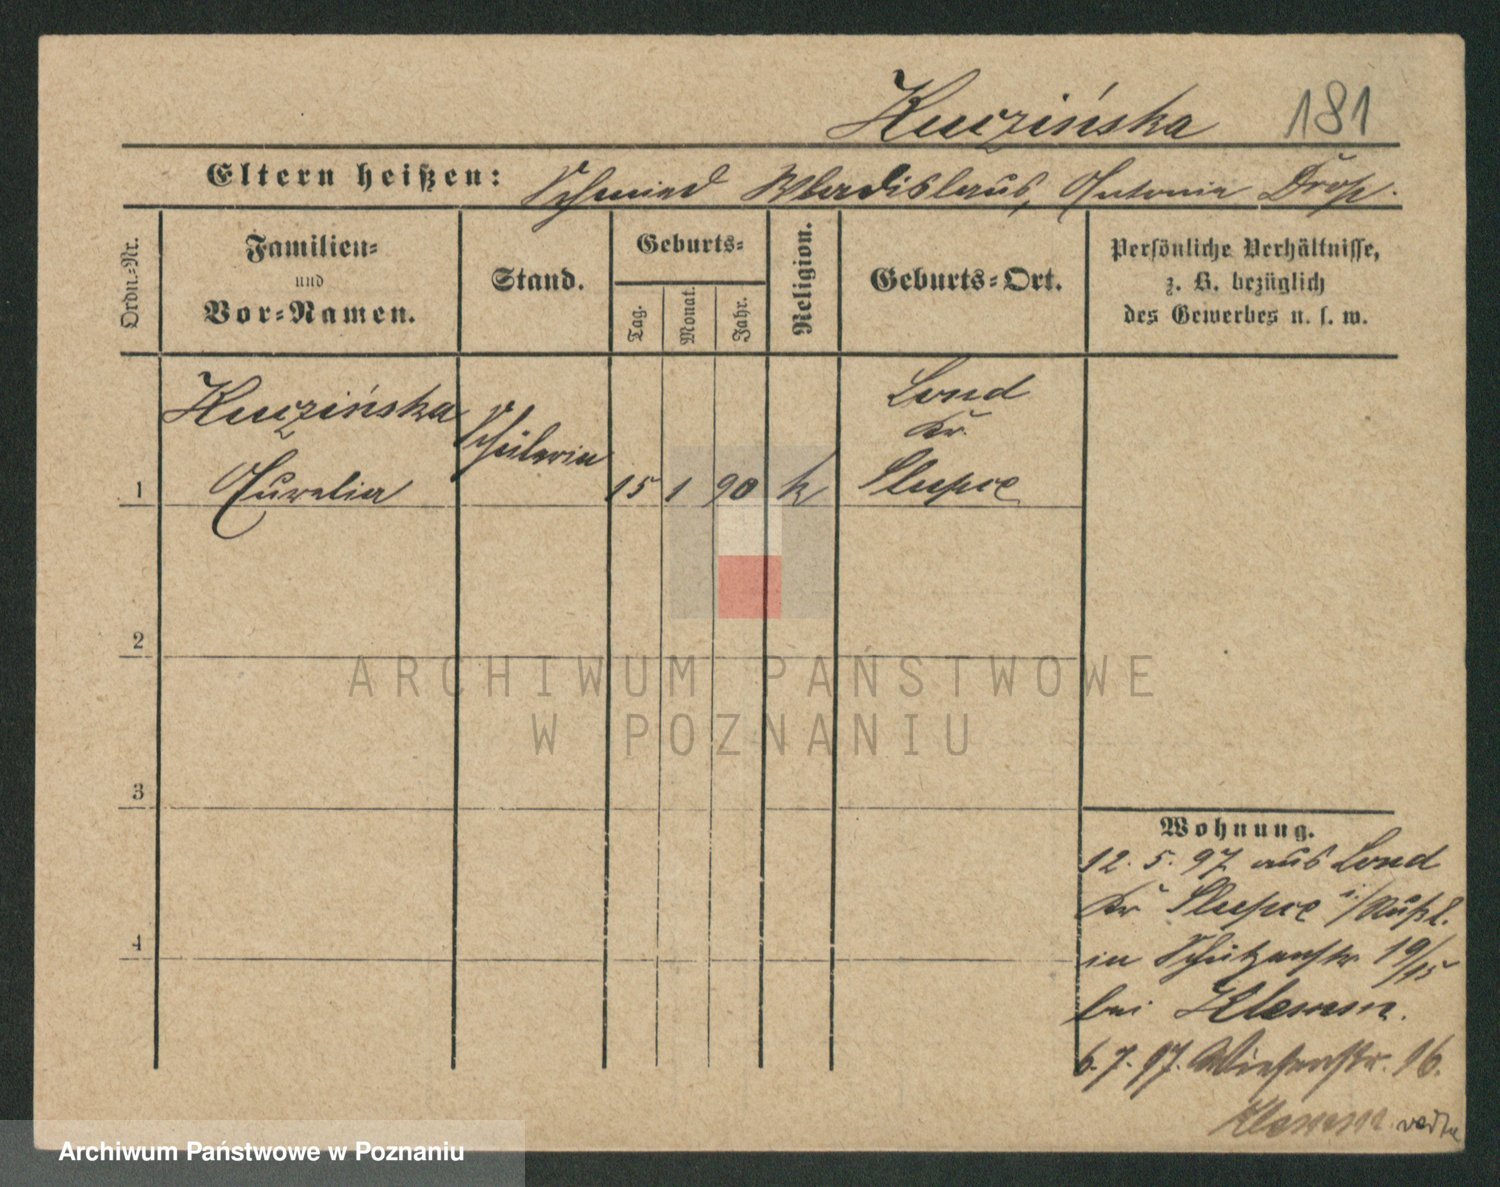 Kuczińska 181
Eltern heißen: Schmied Wladislaus, Antonia Drop.
Ordn.-Nr.
Familien-
und
Vor-Namen.
Stand.
Geburts-
Tag.
Monat.
Jahr.
Religion.
Geburts-Ort.
Persönliche Verhältnisse,
z. B. bezüglich
des Gewerbes u. s. w.
Kuczińska
Aurelia
Schülerin
1 15 1 90 k
Lond
Kr.
Slupce
2
3
4
Wohnung.
12. 5. 97 aus Lond
Kr Slupce i/Rußl.
in Schützenstr 19/15
bei Klemm.
6. 7. 97. Wiesenstr. 16.
Klemm.
ARCHIWUM PAŃSTWOWE
W POZNANIU
Archiwum Państwowe w Poznaniu